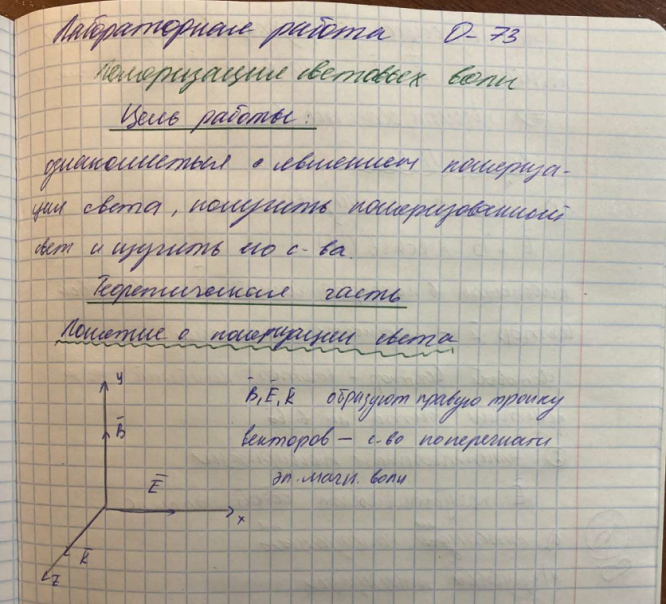 Лабораторная работа О-73
поляризация световых волн
Цель работы:
ознакомиться с явлением поляриза-
ции света, получить поляризованный
свет и изучить его с-ва.
Теоретическая часть
Понятие о поляризации света
y
B̄
Ē
x
k̄
z
B̄, Ē, k̄ образуют правую тройку
векторов — с-во поперечности
эл. магн. волн